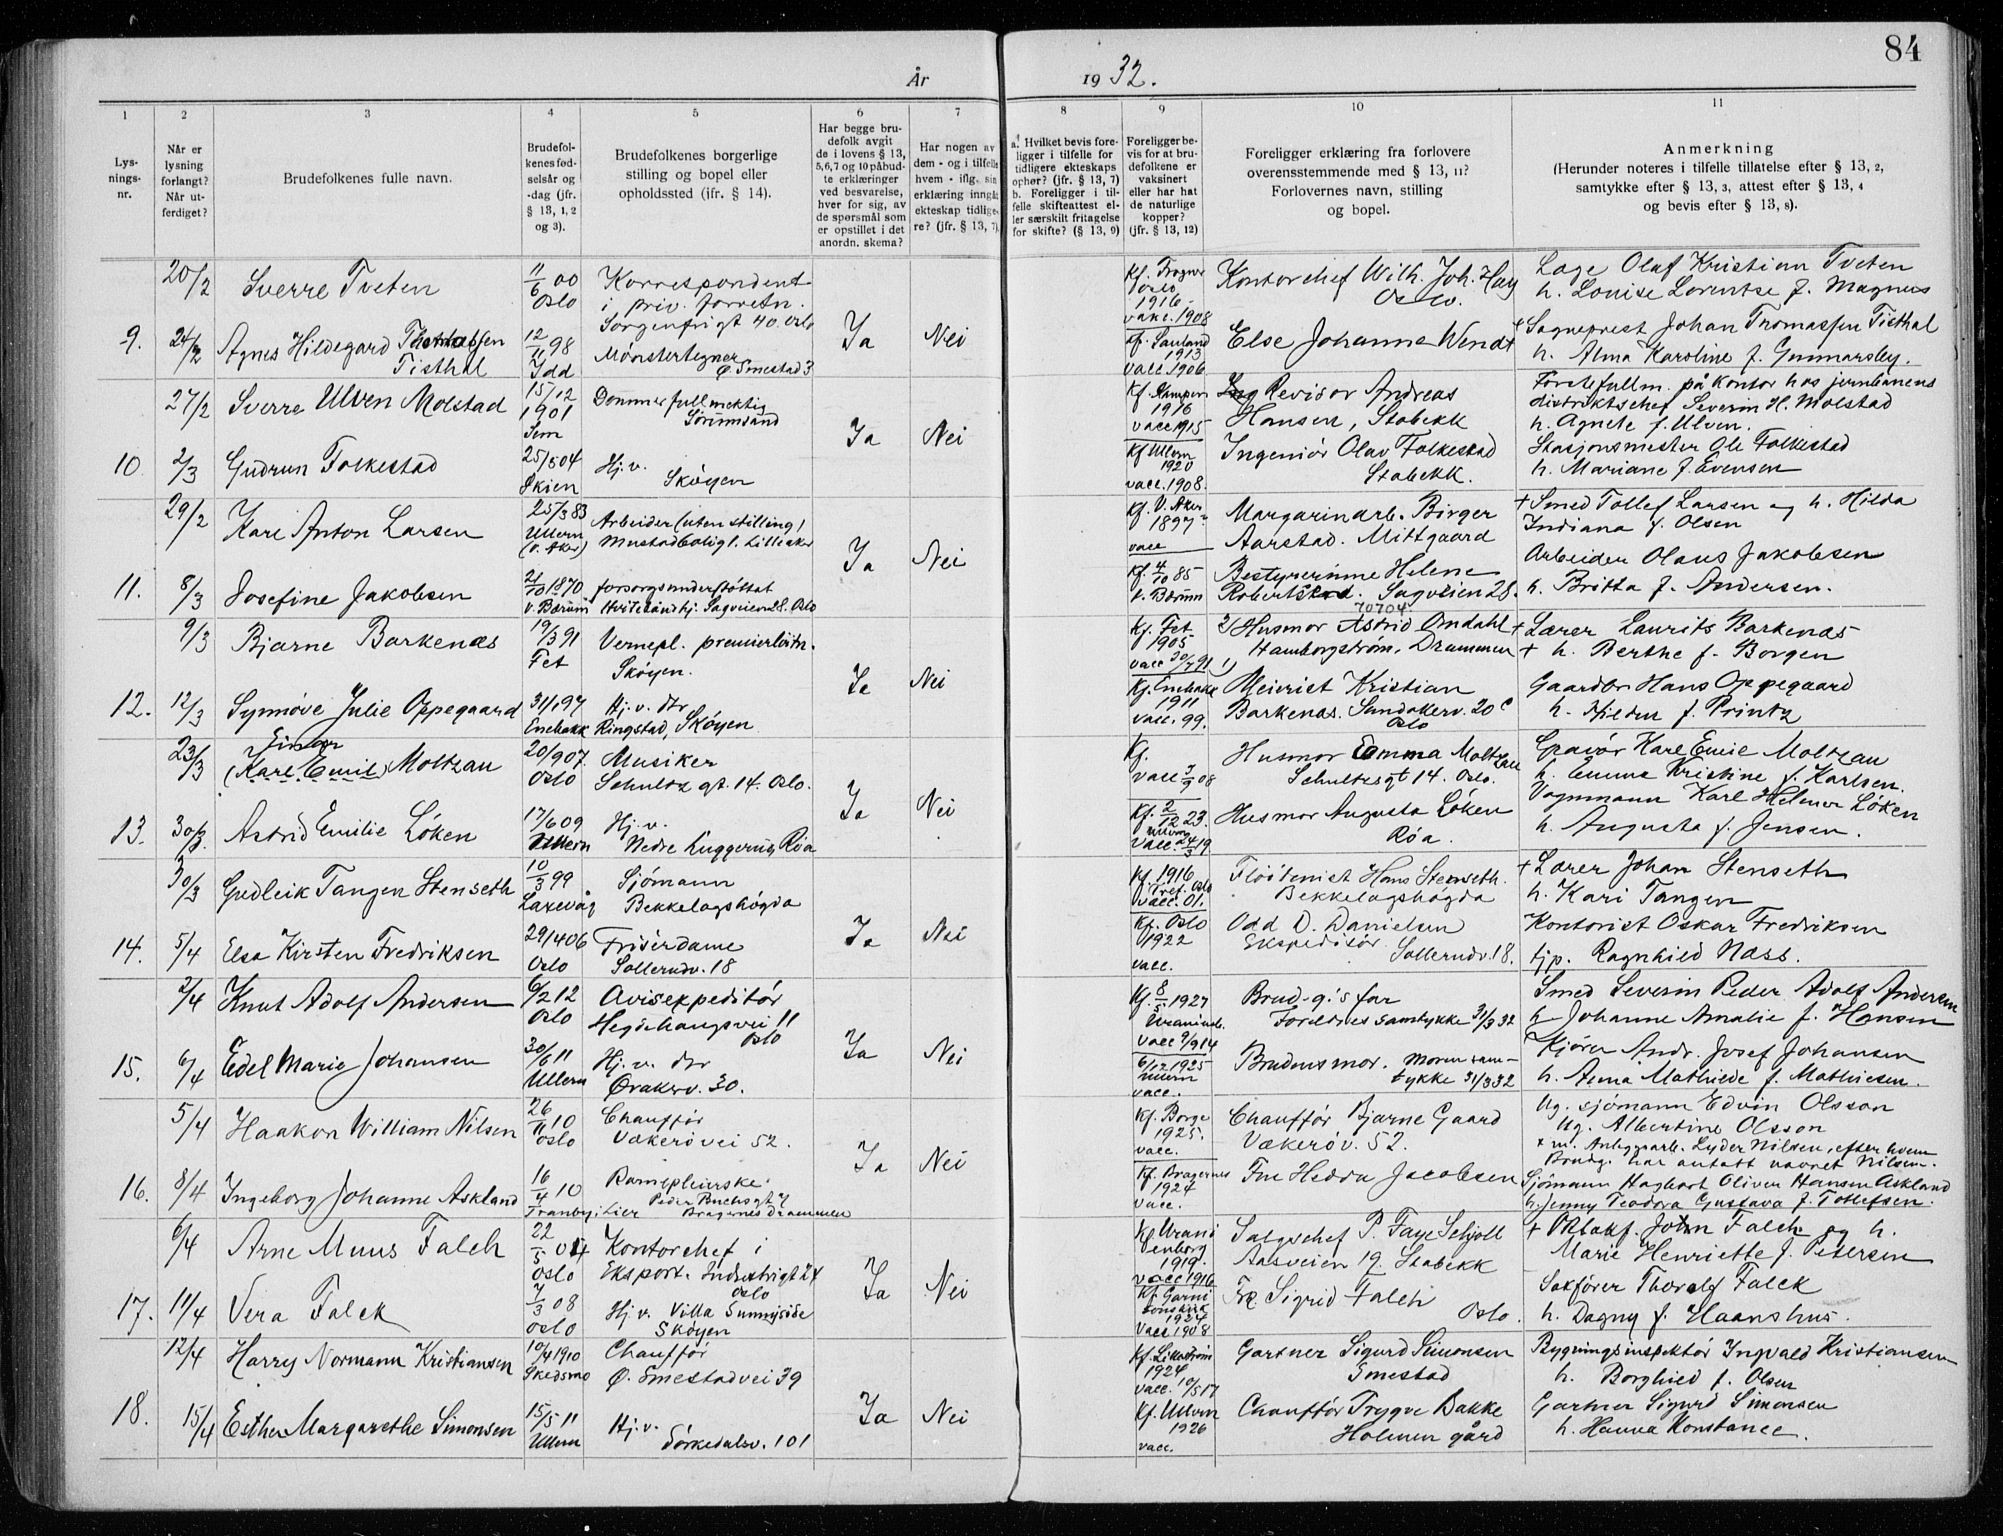 84
År 1932.
1 2 3 4 5 6 7 8 9 10 11
Lysningsnr.
Når er lysning forlangt? Når utferdiget?
Brudefolkenes fulle navn.
Brudefolkenes fødselsår og -dag (jfr. § 13, 1, 2 og 3).
Brudefolkenes borgerlige stilling og bopel eller opholdssted (ifr. § 14).
Har begge brudefolk avgit de i lovens § 13, 5,6,7 og 10 påbudte erklæringer ved besvarelse, hver for sig, av de spørsmål som er opstillet i det anordn. skema?
Har nogen av dem - og i tilfelle hvem - iflg. sin erklæring inngått ekteskap tidligere? (jfr. § 13, 7).
a. Hvilket bevis foreligger i tilfelle for tidligere ekteskaps ophør? (jfr. § 13, 7) b. Foreligger i tilfelle skifteattest eller særskilt fritagelse for skifte? (§ 13, 9)
Foreligger bevis for at brudefolkene er vaksinert eller har hat de naturlige kopper? (jfr. § 13, 12)
Foreligger erklæring fra forlovere overensstemmende med § 13, 11? Forlovernes navn, stilling og bopel.
Anmerkning (Herunder noteres i tilfelle tillatelse efter § 13, 2, samtykke efter § 13, 3, attest efter § 13, 4 og bevis efter § 13, 8).
20/2 Sverre Tveten 11/6 00 Oslo Korrespondent i priv. forretn. Sorgenfrigt 40. Oslo
Kf. Frogner Oslo 1916 vacc. 1908 Kontorchef Wilh. Joh. Oslo.
Læge Olaf Kristian Tveten h. Louise Lorentse f. Magnus
9. 24/2 Agnes Hildegard Thomassen Tisthal 12/11 98 Idd Mønstertegner Ø. Smestad 3 Ja Nei
Kf. Sauland 1913 vacc. 1906 Else Johanne Wendt
+ Sogneprest Johan Thomassen Tisthal h. Alma Karoline f. Gunnarsby.
27/2 Sverre Ulven Molstad 15/12 1901 Sem Dommerfullmektig Sørumsand
Kf. Kampen 1916 vacc 1915 Revisor Andreas Hansen, Stabekk
Førstefullm. på kontor hos jernbanens distriktschef Severin H. Molstad h. Agnete f. Ulven.
10. 2/3 Gudrun Folkestad 25/5 04 Skien Hj. v. Skøyen Ja Nei
Kf Ullern 1920 vacc. 1908. Ingeniør Olav Folkestad Stabekk.
Stasjonsmester Ole Folkestad h. Mariane f. Evensen
29/2 Karl Anton Larsen 25/3 83 Ullern (V. Aker) Arbeider (uten stilling) Mustadboligt. Lilleaker
Kf. V. Aker 1897 vacc Margarinarb. Birger Aarstad. Mittgaard
+ Smed Tollef Larsen og h. Hilda Indiana f. Olsen
11. 8/3 Josefine Jakobsen 21/10 1870 V. Bærum forsorgsunderstøttet Hvitebåndhj. Sagveien 28. Oslo Ja Nei
Kf. 4/10 85 V. Bærum Bestyrerinne Helene Robertstad. Sagveien 28. 70704
Arbeider Olaus Jakobsen h. Britta f. Andersen.
9/3 Bjarne Barkenæs 19/3 91 Fet Vernepl. premierløitn. Skøyen.
Kf. Fet 1905 vacc 30/7 91 2) Husmor Astrid Omdahl Hamborgstrøm, Drammen
+ Lærer Laurits Barkenæs + h. Berthe f. Borgen
12. 12/3 Synnøve Julie Oppegaard 31/1 97 Enebakk Hj. v. dtr Ringstad, Skøyen Ja Nei
Kf. Enebakk 1911 vacc. 99. 1) Meierist Kristian Barkenæs. Sandakerv. 20 c Oslo
Gaardbr Hans Oppegaard h. Hilda f. Printz
23/3 Einar (Karl Emil) Moltzau 20/9 07. Oslo Musiker Schultz gt. 14. Oslo.
Kf. vacc 7/9 08 Husmor Emma Moltzau Schultzsgt 14. Oslo.
Gravør Karl Emil Moltzau h. Emma Kristine f. Karlsen.
13. 30/3. Astrid Emilie Løken 17/6 09 Ullern Hj. v. Nedre Røa Ja Nei
Kf. 2/12 23. Ullern vacc. 24/3 19 Husmor Augusta Løken Røa.
Vognmann Karl Helmer Løken h. Augusta f. Jensen.
30/3 Gudleik Tangen Stenseth 10/3 99 Laxevåg Sjømann Bekkelagshøgda
Kf 1916 Tref. Oslo vacc. 01. Fløitenist Hans Stenseth. Bekkelagshøgda
+ Lærer Johan Stenseth h. Kari Tangen
14. 5/4 Elsa Kirsten Fredriksen 29/4 06 Oslo Frisørdame Sollerudv. 18 Ja Nei
Kf. Oslo 1922 vacc. Odd D. Danielsen Ekspeditør Sollerudv. 18.
Kontorist Oskar Fredriksen tjp. Ragnhild Næss.
2/4 Knut Adolf Andersen 6/2 12 Oslo Avisexpeditør Hegdehaugsvei 11 Oslo
Kf. 8/5 1927 Uranienb. vacc 7/9 14 Brud-g's far Foreldres samtykke 31/3 32
Smed Severin Peder Adolf Andersen h Johanne Amalie f. Hansen
15. 6/4 Edel Marie Johansen 30/6 11 Ullern Hj. v. dtr Øvakerv. 30. Ja Nei
6/12 1925 Ullern vacc. Brudens mor. Moren samtykke 31/3 32
Kjører Andr. Josef Johansen h. Anna Mathilde f. Mathiesen.
5/4 Haakon William Nilsen 26/11 10 Oslo Chauffør Vækerøvei 52.
Kf. Borge 1925. vacc. Chauffør Bjarne Gaard Vækerøv. 52.
Ug. sjømann Edvin Olsson Ug. Albertine Olsson x m. Anleggsarb. Lyder Nilsen, efter hvem Brudg. har antatt navnet Nilsen.
16. 8/4 Ingeborg Johanne Askland 16/4 10 Tranby i Lier Rampleierske Peder Buchsgt 7 Bragernes Drammen Ja Nei
Kf. Bragernes 1924 vacc. Fru Hedda Jacobsen
Sjømann Hagbart Oliver Hansen Askland h. Jenny Teodora Gustava f. Tollefsen.
6/4 Arne Muus Falch 22/5 04 Oslo Kontorchef i Eksport. Industrigt 24 Oslo
Kf Uranienborg 1919. vacc 1916 Salgschef P. Faye Schjøll Aasveien 19. Stabekk
+ John Falch og h. Marie Henriette f. Petersen
17. 11/4 Vera Falck 7/3 08 Oslo Hj. v. Villa Sunnyside Skøyen Ja Nei
Kf. Garnisonskirk 1924 vacc 1908 Sigrid Falch Oslo.
Sakfører Thoralf Falck h. Dagny f. Haanshus.
12/4 Harry Normann Kristiansen 10/4 1910 Skedsmo Chauffør Ø. Smestadvei 39
Kf. Lillestrøm 1924 vacc. 10/5 17 Gartner Sigurd Simonsen Smestad
Bygningsinspektør Ingvald Kristiansen h. Borghild f. Olsen
18. 15/4 Esther Margarethe Simonsen 15/5 11 Ullern Hj. v. Sørkedalsv. 101 Ja Nei
Kf. Ullern 1926 vacc. Chauffør Trygve Bakke Holmen gård
Gartner Sigurd Simonsen h. Hanna Konstance.